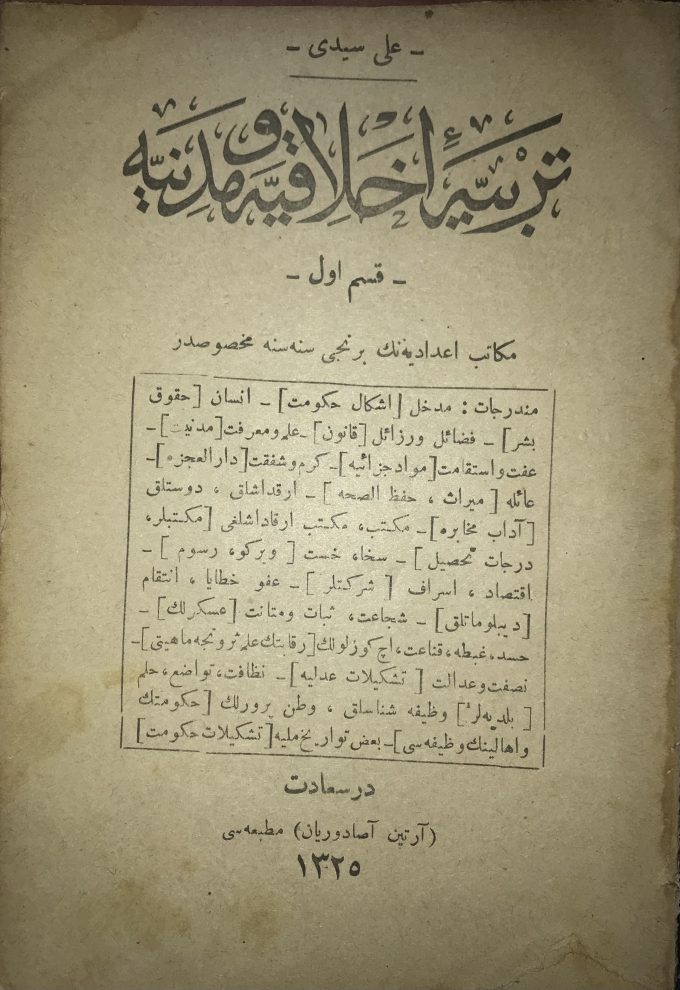 - علی سیدی -
تربیهٔ اخلاقیه و مدنیه
- قسم اول -
مکاتب اعدادیه‌نك برنجی سنه‌سنه مخصوصدر
مندرجات : مدخل [اشکال حکومت] - انسان [حقوق
بشر] - فضائل ورزائل [قانون] - علم ومعرفت [مدنیت] -
عفت واستقامت [مواد جزائیه] - کرم وشفقت [دارالعجزه] -
عائله [میراث ، حفظ الصحه] - ارقداشلق ، دوستلق
[آداب مخابره] - مکتب، مکتب ارقاداشلغی [مکتبلر،
درجات تحصیل] - سخا، خست [ویرکو، رسوم] -
اقتصاد ، اسراف [شرکتلر] - عفو خطایا ، انتقام
[دیپلوماتلق] - شجاعت، ثبات ومتانت [عسکرلك] -
حسد، غبطه، قناعت، آچ کوزلولك [رقابتك علم ثروتجه ماهیتی] -
نصفت وعدالت [تشکیلات عدلیه] - نظافت، تواضع، حلم
[بلدیه‌لر] وظیفه شناسلق ، وطن پرورلك [حکومتك
واهالینك وظیفه‌سی] - بعض تواریخ ملیه [تشکیلات حکومت]
درسعادت
(آرتین آصادوریان) مطبعه‌سی
١٣٢٥